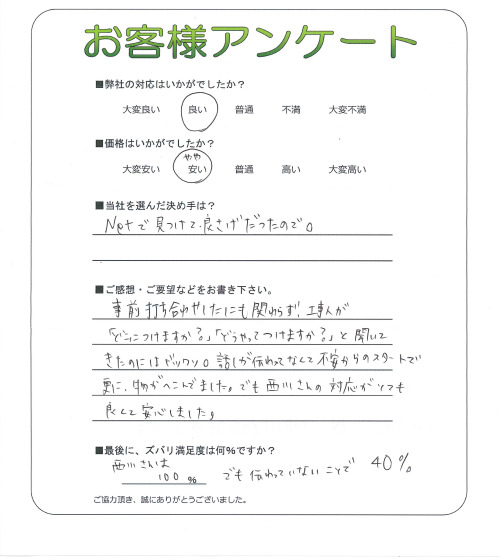 お客様アンケート
■弊社の対応はいかがでしたか？
大変良い 良い 普通 不満 大変不満
■価格はいかがでしたか？
やや
大変安い 安い 普通 高い 大変高い
■当社を選んだ決め手は？
Netで見つけて、良さげだったので。
■ご感想・ご要望などをお書き下さい。
事前打ち合わせしたにも関わらず、工事人が
「どこにつけますか？」「どうやってつけますか？」と聞いて
きたのにはビックリ。話しが伝わってなくて不安からのスタートで
更に、物がへこんでました。でも西川さんの対応がとても
良くて安心しました。
■最後に、ズバリ満足度は何％ですか？
西川さんは
100 ％ でも伝わっていないことで 40％
ご協力頂き、誠にありがとうございました。